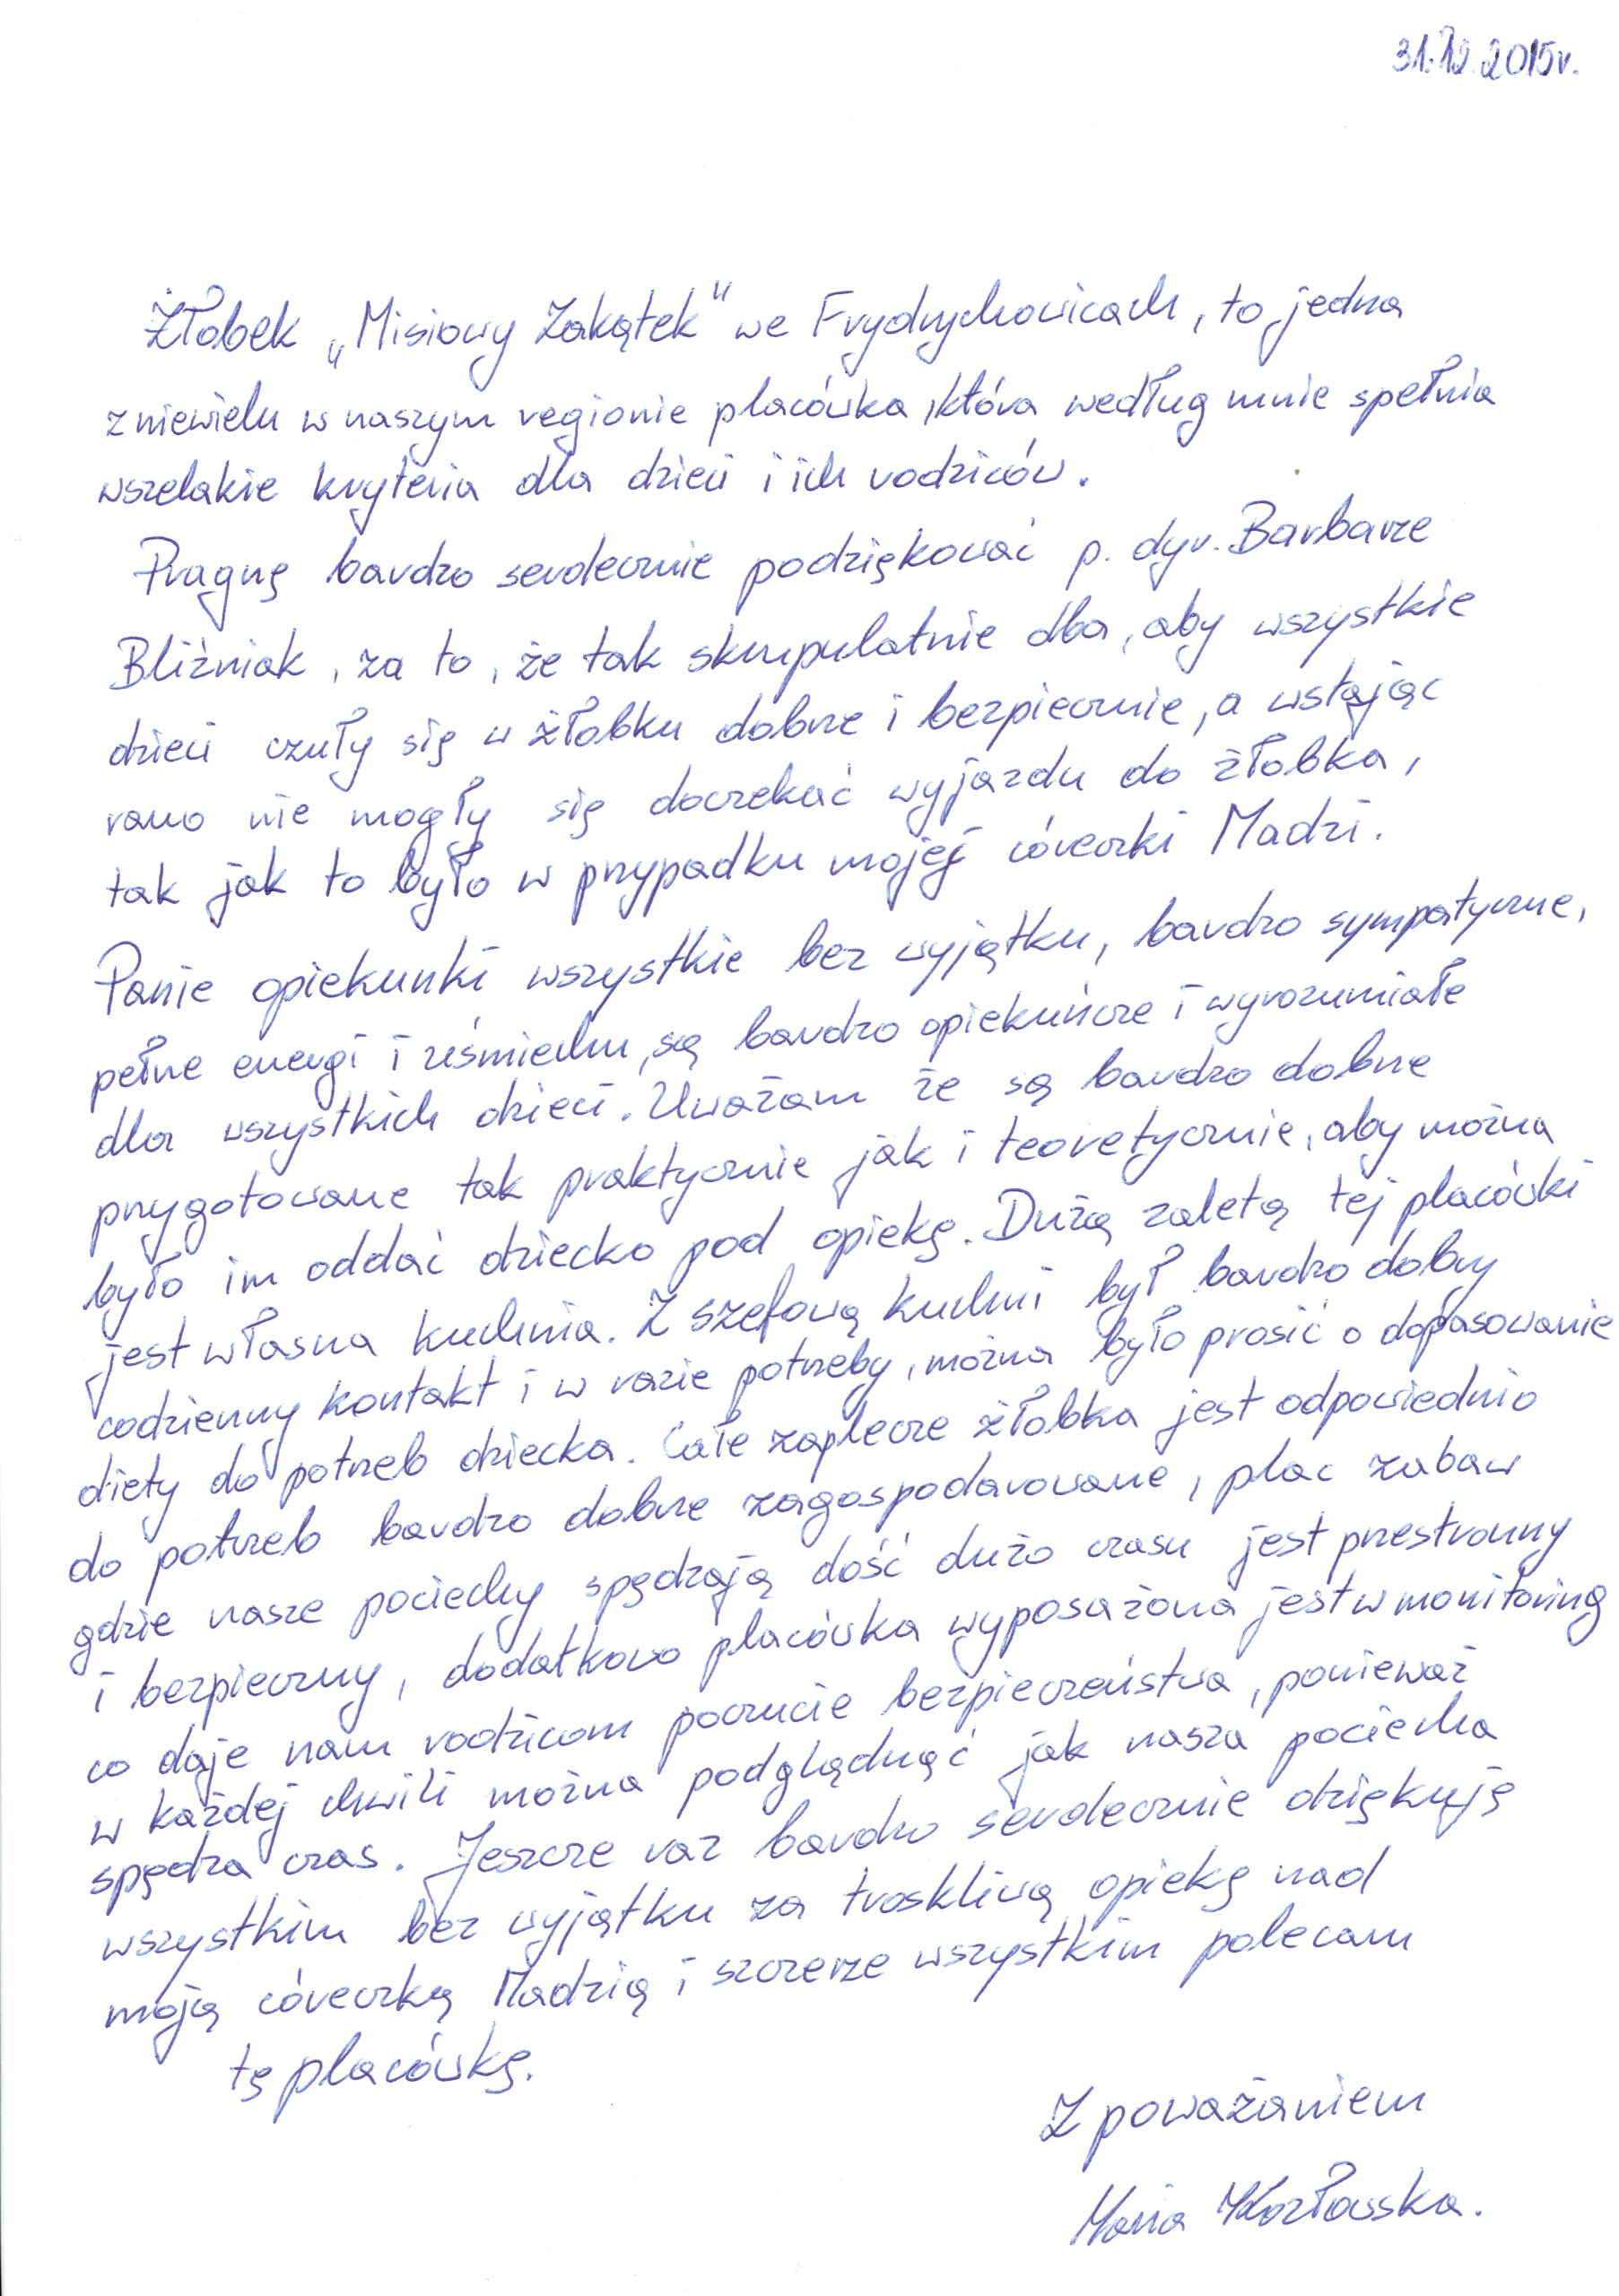 31.12.2015r.
Żłobek „Misiowy Zakątek" we Frydrychowicach, to jedna
z niewielu w naszym regionie placówka, która według mnie spełnia
wszelakie kryteria dla dzieci i ich rodziców.
Pragnę bardzo serdecznie podziękować p. dyr. Barbarze
Bliźniak, za to, że tak skrupulatnie dba, aby wszystkie
dzieci czuły się w żłobku dobrze i bezpiecznie, a wstając
rano nie mogły się doczekać wyjazdu do żłobka,
tak jak to było w przypadku mojej córeczki Madzi.
Panie opiekunki wszystkie bez wyjątku, bardzo sympatyczne,
pełne energi i uśmiechu, są bardzo opiekuńcze i wyrozumiałe
dla wszystkich dzieci. Uważam że są bardzo dobrze
przygotowane tak praktycznie jak i teoretycznie, aby można
było im oddać dziecko pod opiekę. Dużą zaletą tej placówki
jest własna kuchnia. Z szefową kuchni był bardzo dobry
codzienny kontakt i w razie potrzeby, można było prosić o dopasowanie
diety do potrzeb dziecka. Całe zaplecze żłobka jest odpowiednio
do potrzeb bardzo dobrze zagospodarowane, plac zabaw
gdzie nasze pociechy spędzają dość dużo czasu jest przestronny
i bezpieczny, dodatkowo placówka wyposażona jest w monitoring
co daje nam rodzicom poczucie bezpieczeństwa, ponieważ
w każdej chwili można podglądnąć jak nasza pociecha
spędza czas. Jeszcze raz bardzo serdecznie dziękuję
wszystkim bez wyjątku za troskliwą opiekę nad
moją córeczką Madzią i szczerze wszystkim polecam
tę placówkę.
Z poważaniem
Maria